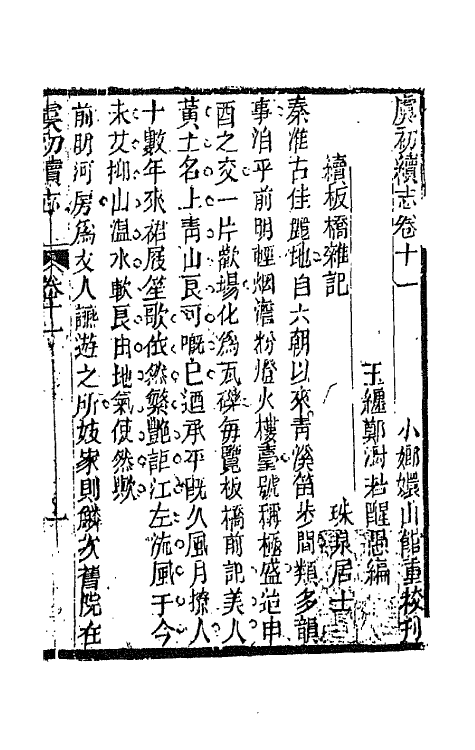 虞初續志卷十一　小嫏嬛山館重校刊
玉纏鄭澍若醒愚編
續板橋雜記　珠泉居士
秦淮古佳麗地自六朝以來青溪笛步間類多韻
事洎乎前明輕烟澹粉燈火樓臺號稱極盛迨申
酉之交一片歡場化為瓦礫每覽板橋前記美人
黃土名士青山良可慨已迺承平既久風月撩人
十數年來裙屐笙歌依然繁艷詎江左流風于今
未艾抑山温水軟良由地氣使然歟
前明河房為文人讌遊之所妓家則鱗次舊院在
虞初續志　卷十一　一